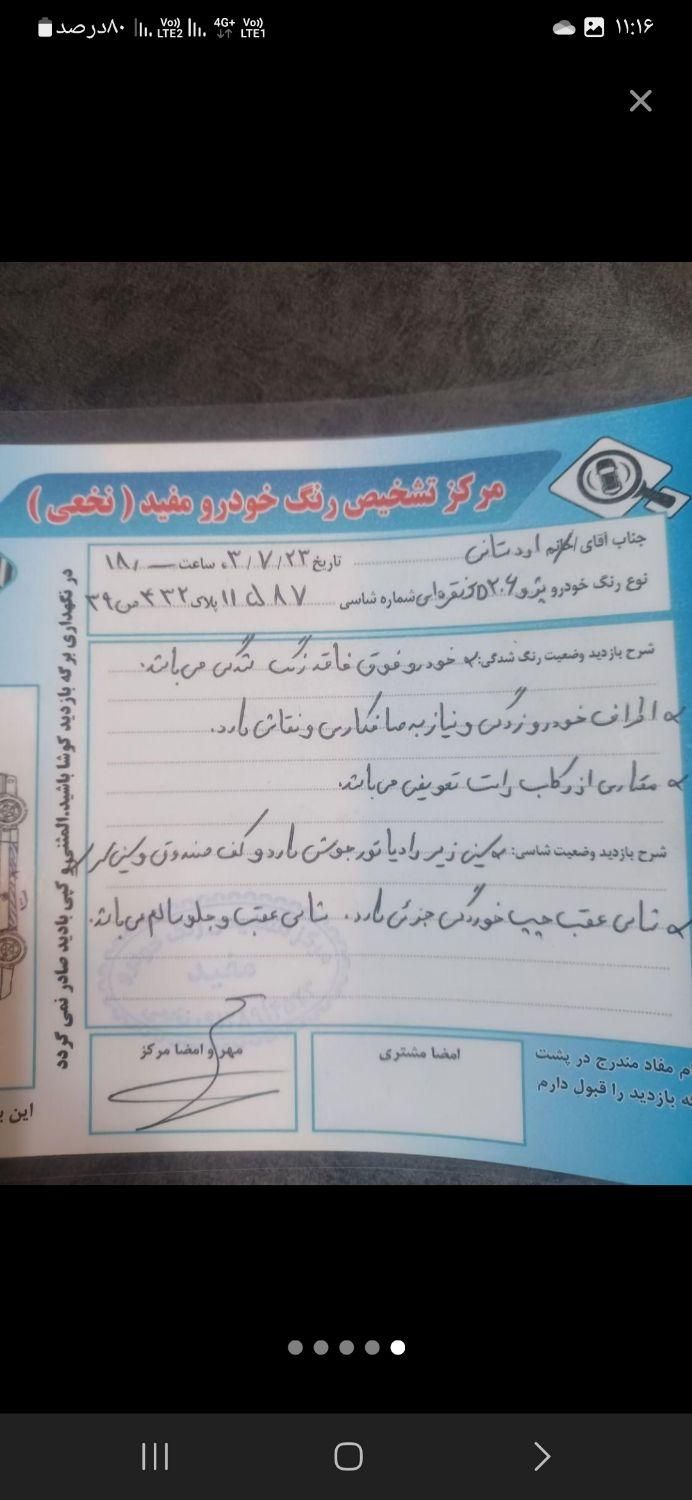 ۱۱:۱۶
VoLTE1 4G+ VoLTE2 ۸۰درصد
مرکز تشخیص رنگ خودرو مفید ( نخعی )
جناب آقای /خانم اودستانی
تاریخ ۰۳/۷/۲۳ ساعت ۱۸/
نوع رنگ خودرو پژو ۲۰۶ نقره‌ای شماره شاسی ۱۱ ل ۸۷ پلاک ۴۳۲ ص ۳۹
شرح بازدید وضعیت رنگ شدگی: خودرو فوق فاقد رنگ شدگی می باشد.
اطراف خودرو زدگی و نیاز به صافکاری و نقاشی دارد.
مقداری از رکاب راست تعویض می باشد.
شرح بازدید وضعیت شاسی: سینی زیر رادیاتور جوش دارد و کف صندوق و سینی
شاسی عقب چپ خوردگی جزئی دارد. شاسی عقب و جلو سالم می باشد.
مفید
مهر و امضا مرکز
امضا مشتری
مفاد مندرج در پشت
بازدید را قبول دارم
در نگهداری برگه بازدید کوشا باشید.المثنی و کپی بادید صادر نمی گردد
این